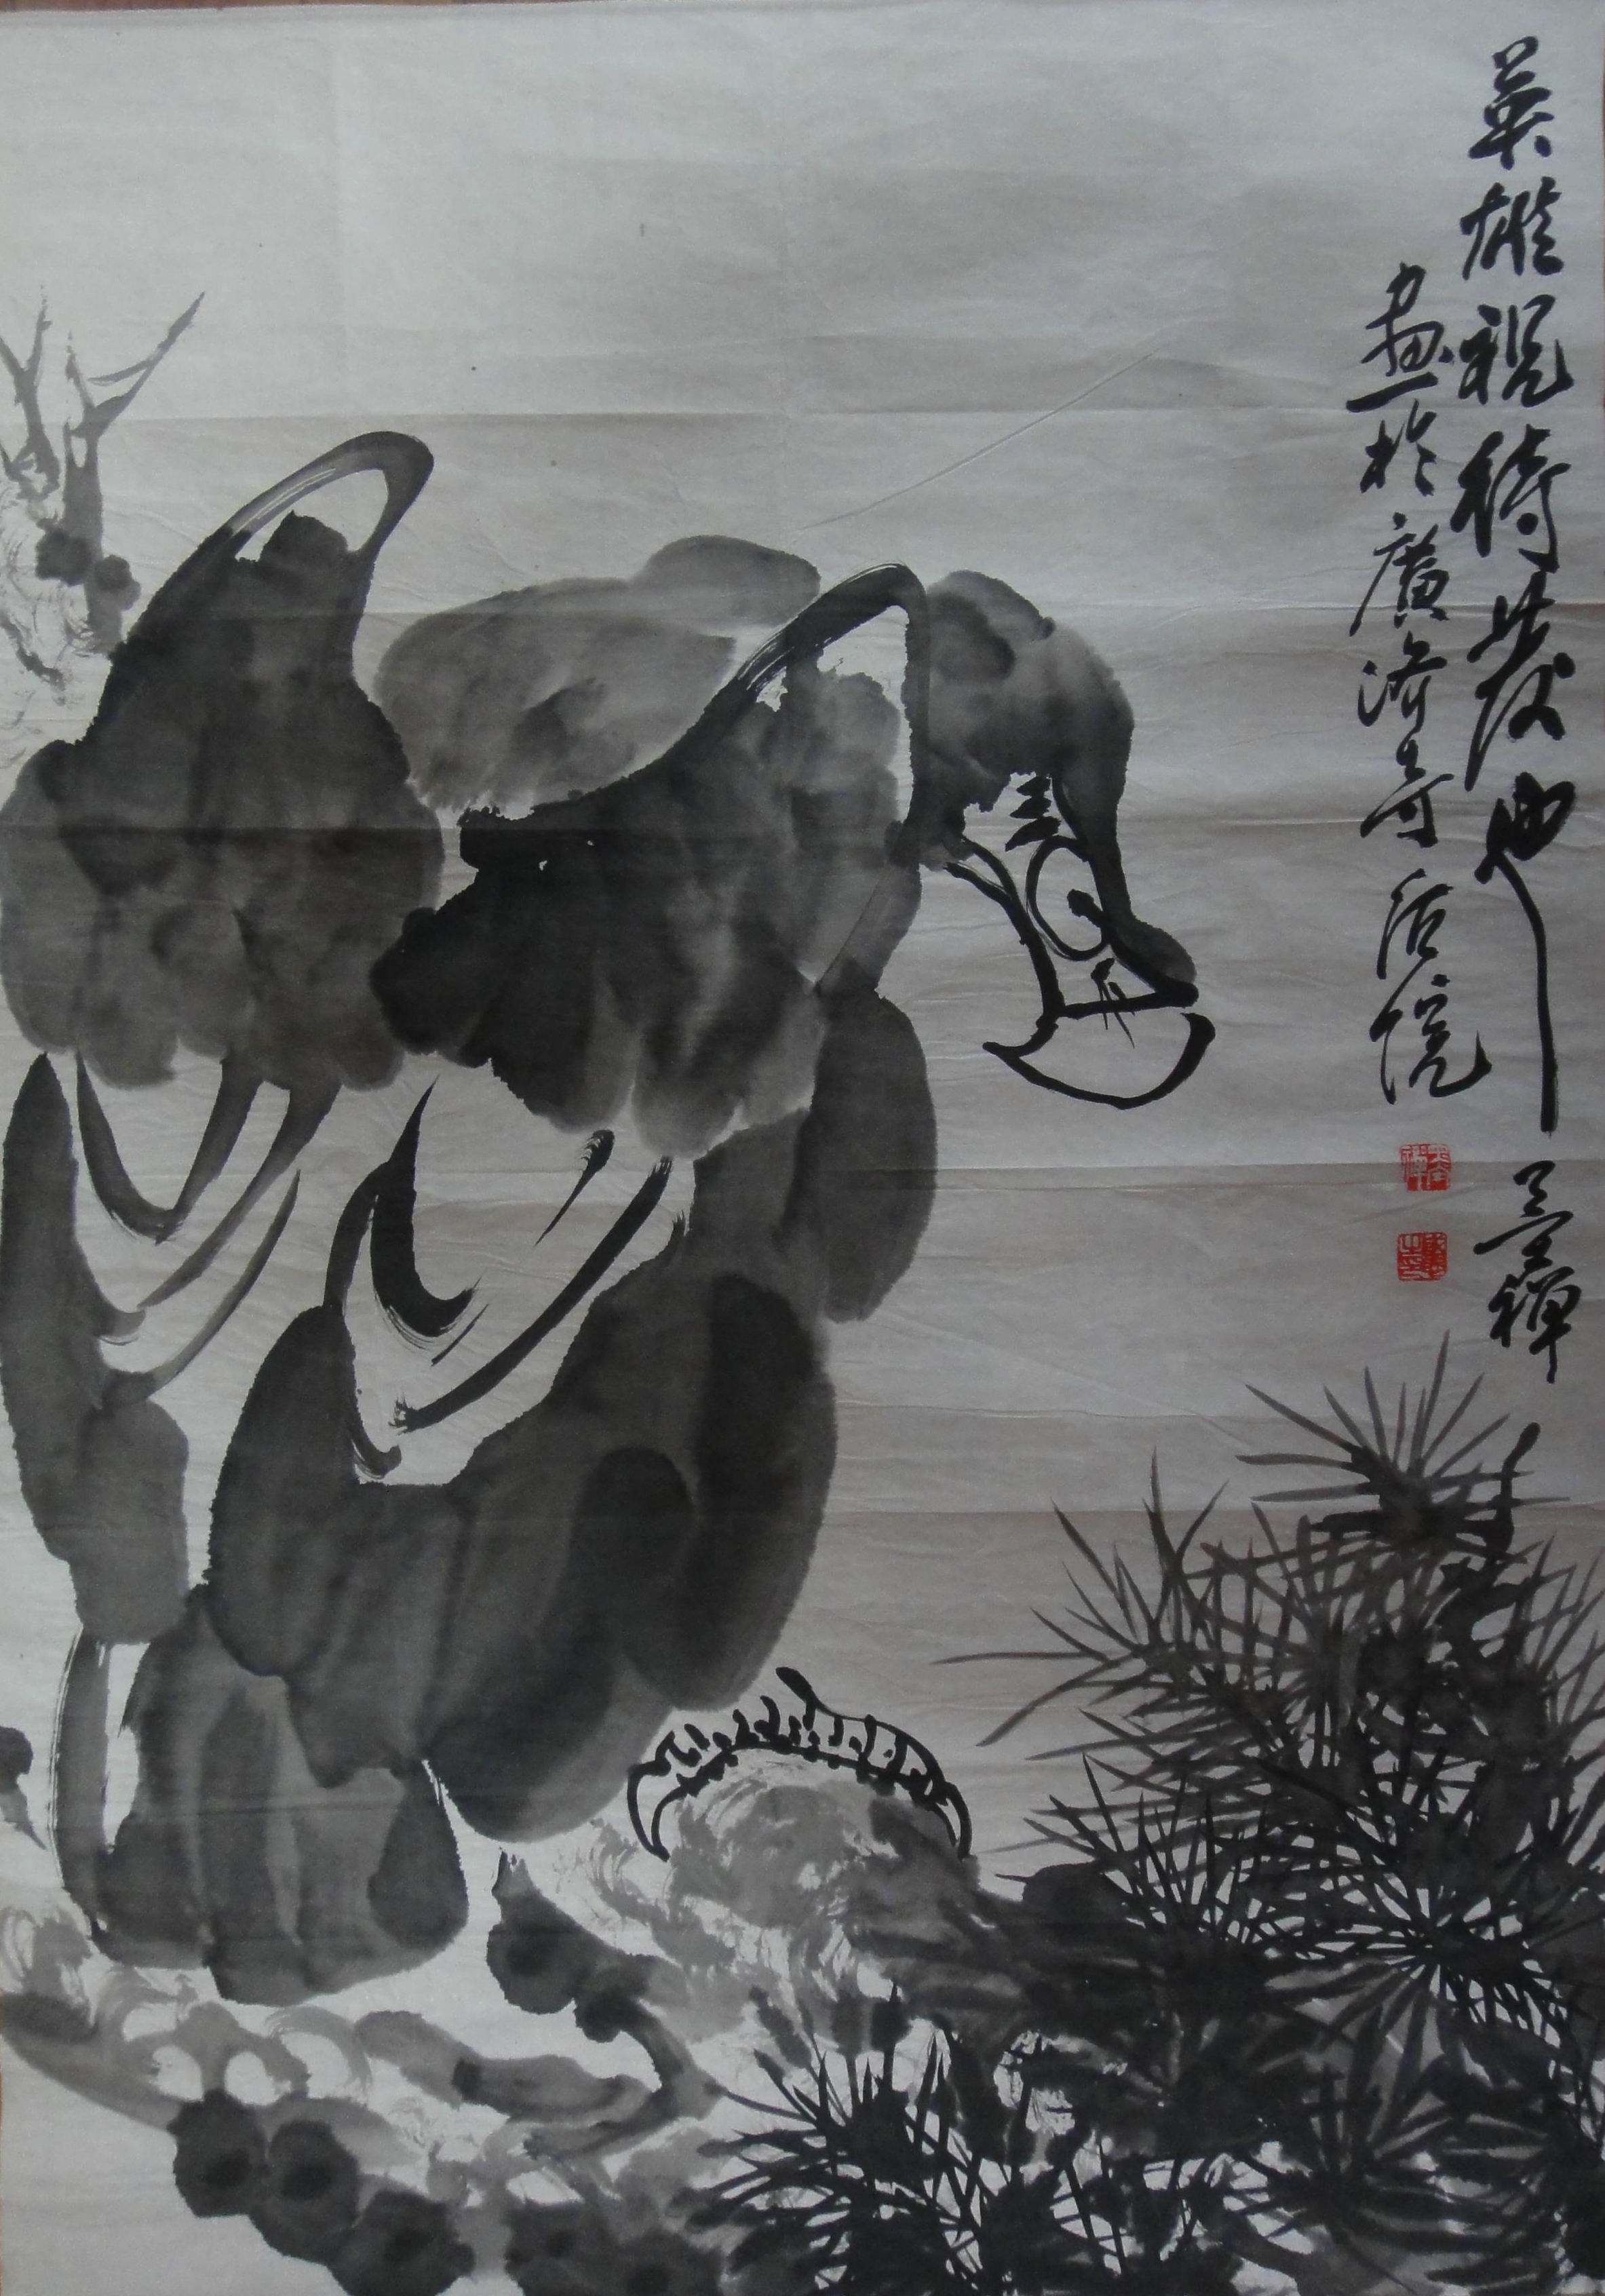 英雄視待發也 禪
畫於廣濟寺后院